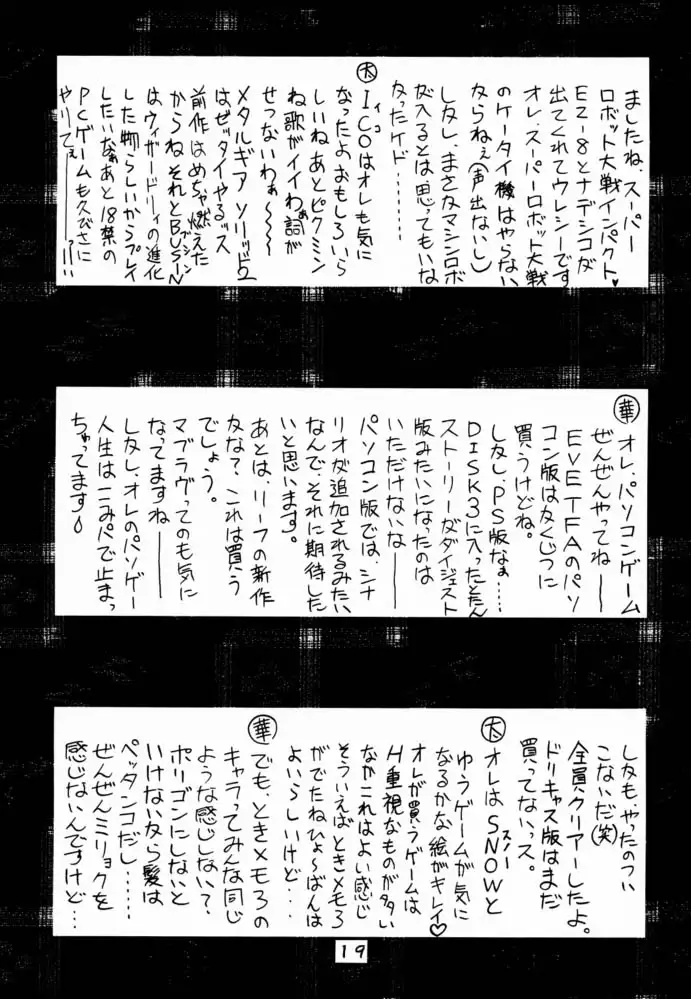 ましたね、スーパー
ロボット大戦インパクト♡
EZ-8とナデシコが
出てくれてウレシーです
オレ、スーパーロボット大戦
のケータイ機はやらない
ならねぇ(声出ないし)
しかし、まさかマシンロボ
が入るとは思ってもいな
かったケド………
太
ICOはオレも気に
イコ
なったよおもしろいら
しいねあとピクミン
ね歌がイイわぁ詞が
せつないわぁ〜〜〜
メタルギア ソリッド2
はゼッタイやるッス
前作はめちゃ燃えた
からねそれとBUSIN
ブシン
はウィザードリィの進化
した物らしいからプレイ
したいなぁあと18禁の
PCゲームも久びさに
やりてぇ――――っ!!!
華
オレ、パソコンゲーム
ぜんぜんやってね――
EVE TFAのパソ
コン版はかくじつに
買うけどね。
しかし、PS版なぁ……
DISK3に入ったとたん
ストーリーがダイジェスト
版みたいになったのは
いただけないな――
パソコン版では、シナ
リオが追加されるみたい
なんで、それに期待した
いと思います。
あとは、リーフの新作
かな?これは買う
でしょう。
マブラヴってのも気に
なってますね――
しかし、オレのパソゲー
人生はこみパで止まっ
ちゃってます
しかも、やったのつい
こないだ(笑)
全員クリアーしたよ。
ドリキャス版はまだ
買ってないっス。
太
オレはSNOWと
スノー
ゆうゲームが気に
なるかな絵がキレイ♡
オレが買うゲームは
H重視なものが多い
なかこれはよい感じ
そういえばときメモ3
がでたねひょ〜ばんは
よいらしいけど…
華
でも、ときメモ3の
キャラってみんな同じ
ような感じしない?
ポリゴンにしないと
いけないから髪は
ペッタンコだし……
ぜんぜんミリョクを
感じないんですけど…
19